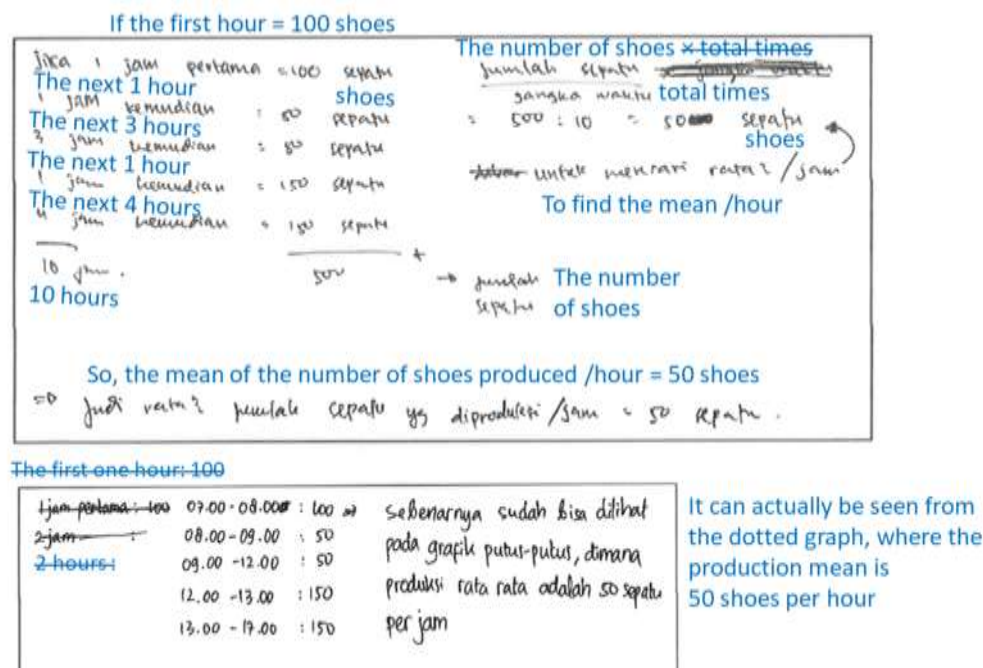 If the first hour = 100 shoes
jika 1 jam pertama = 100 sepatu
The next 1 hour
shoes
1 jam kemudian : 50 sepatu
The next 3 hours
3 jam kemudian : 50 sepatu
The next 1 hour
1 jam kemudian = 150 sepatu
The next 4 hours
4 jam kemudian = 150 sepatu
10 jam.
500 +
10 hours
The number of shoes × total times
jumlah sepatu
jangka waktu total times
= 500 : 10 = 50 sepatu
shoes
untuk mencari rata2 /jam
To find the mean /hour
→ jumlah The number
sepatu of shoes
So, the mean of the number of shoes produced /hour = 50 shoes
⇒ Jadi rata2 jumlah sepatu yg diproduksi /jam = 50 sepatu.
The first one hour: 100
1 jam pertama : 100 07.00 - 08.00 : 100 ⇒
2 jam : 08.00 - 09.00 : 50
2 hours: 09.00 - 12.00 : 50
12.00 - 13.00 : 150
13.00 - 17.00 : 150
sebenarnya sudah bisa dilihat
pada grafik putus-putus, dimana
produksi rata rata adalah 50 sepatu
per jam
It can actually be seen from
the dotted graph, where the
production mean is
50 shoes per hour